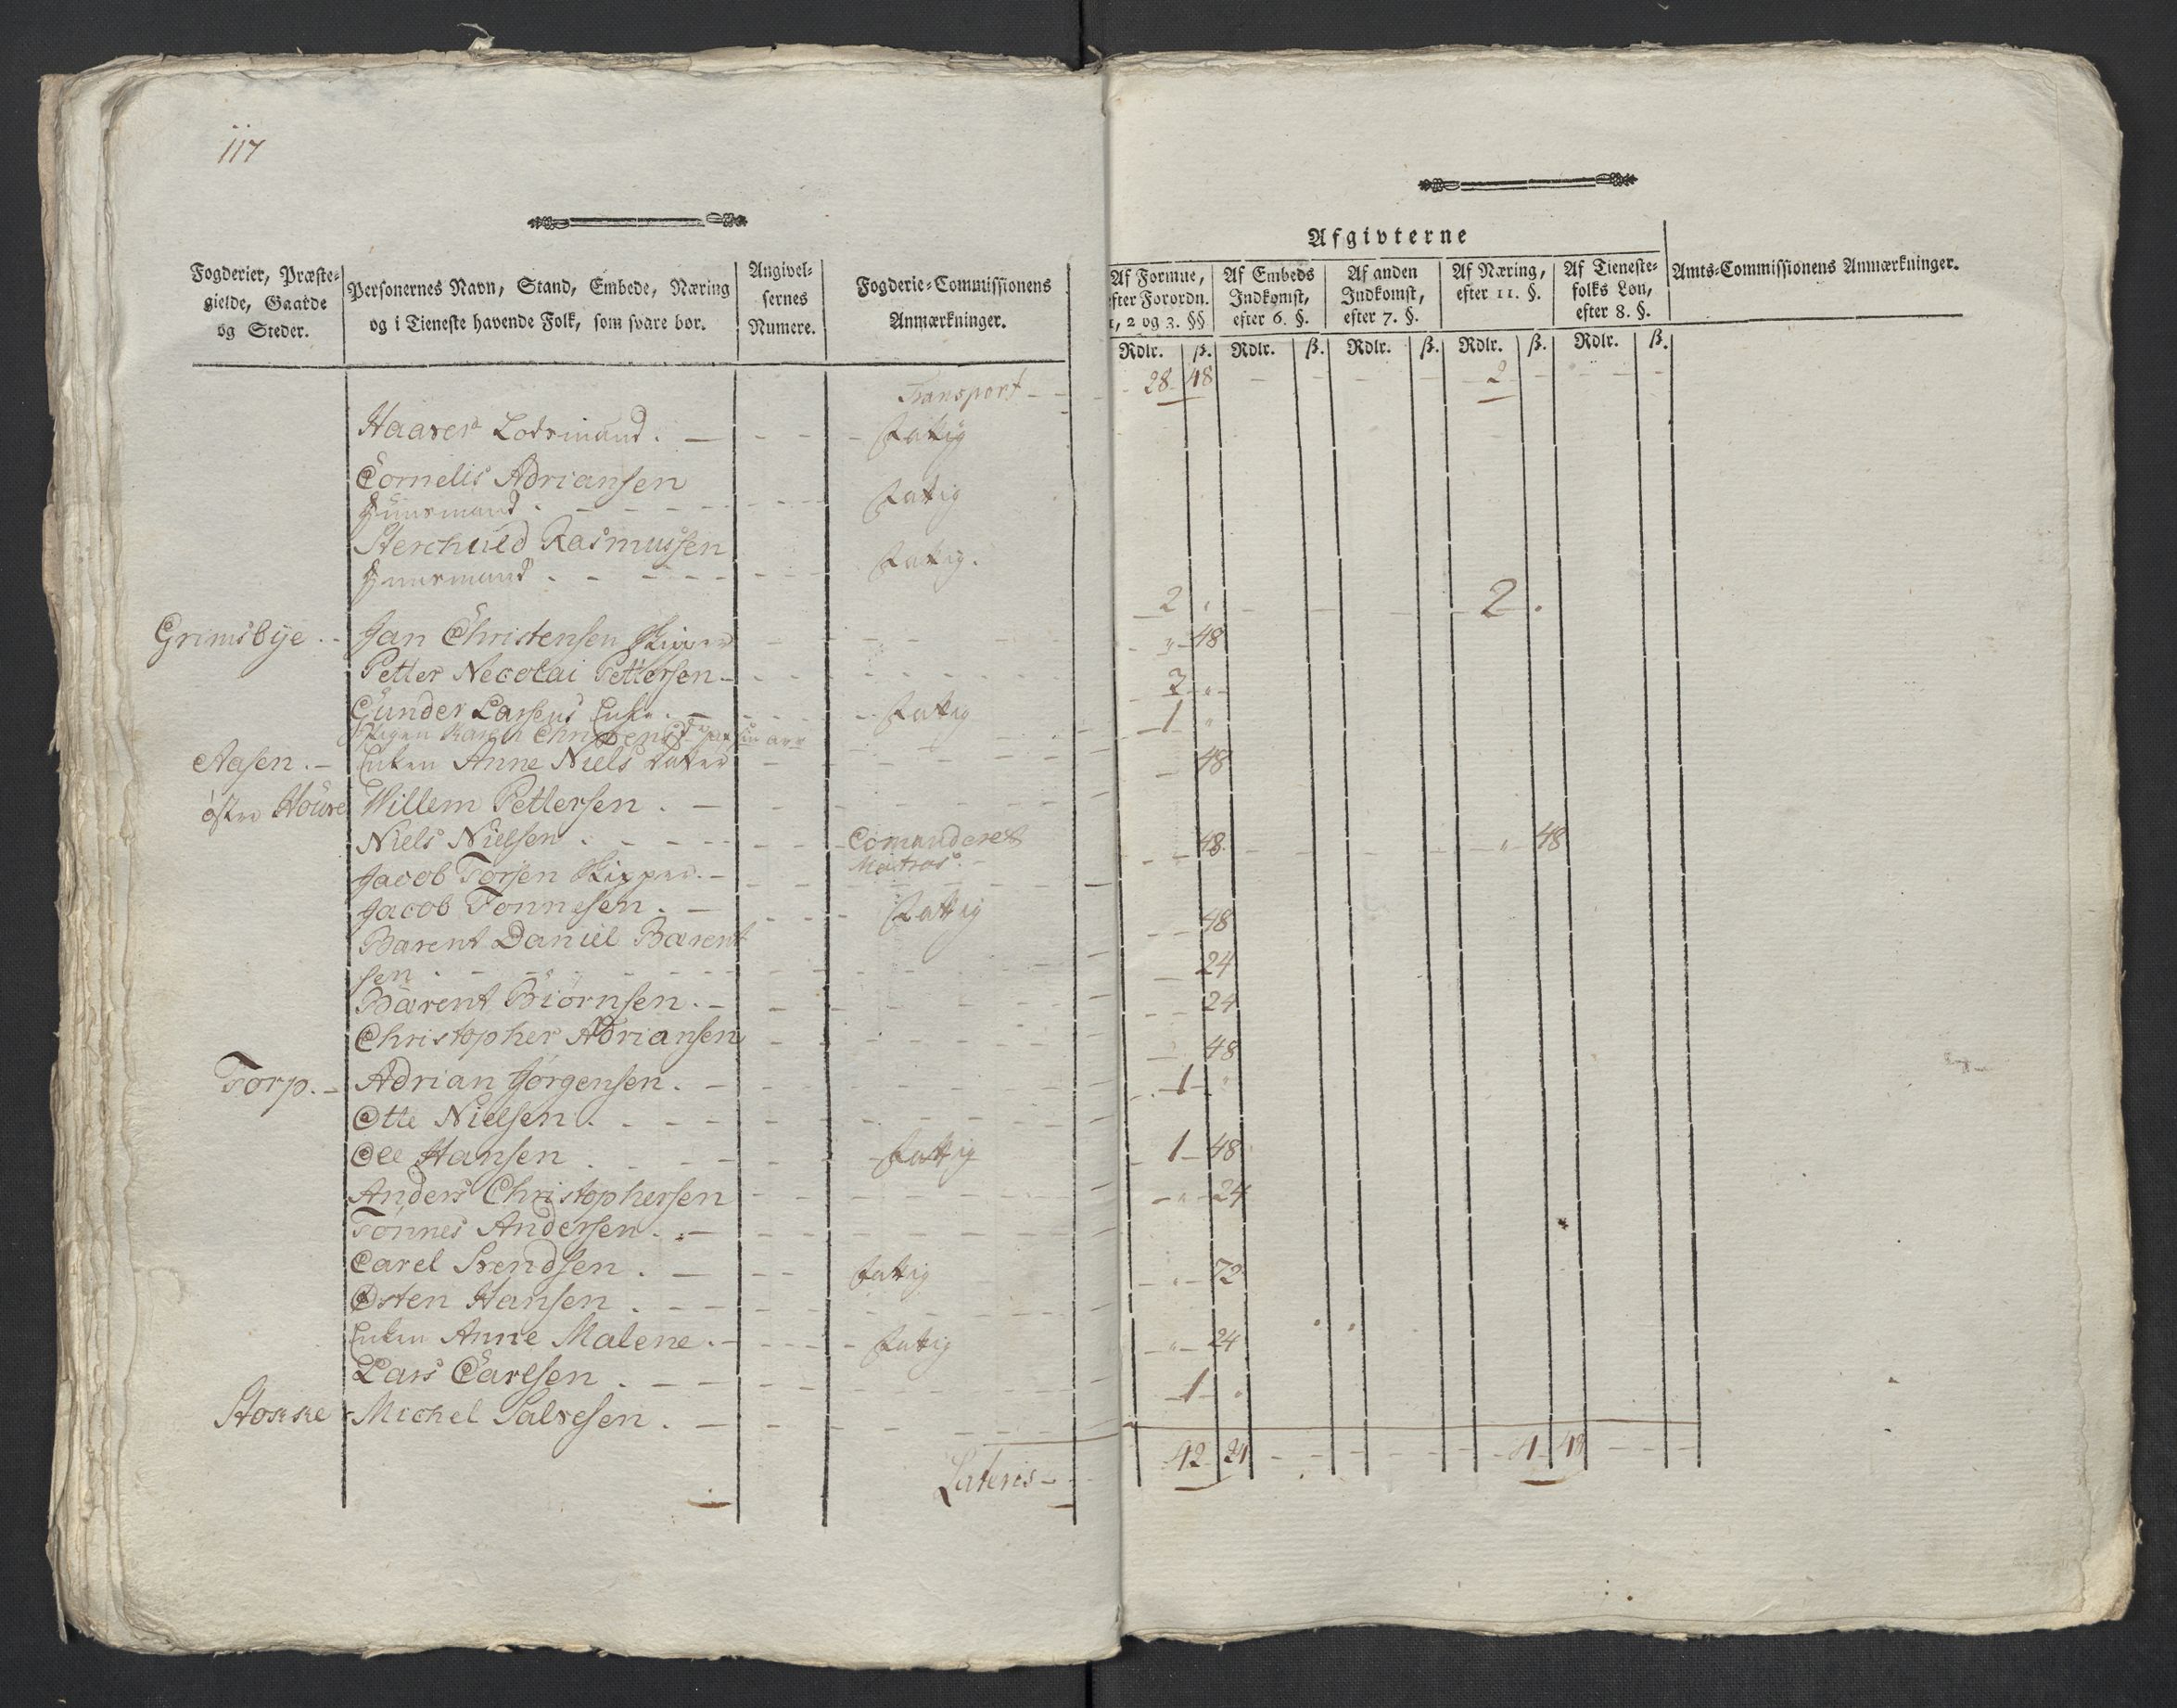 117
Fogderier, Præste-
gielde, Gaarde
og Steder.
Personernes Navn, Stand, Embede, Næring
og i Tieneste havende Folk, som svare bør.
Angivel-
sernes
Numere.
Fogderie-Commissionens
Anmærkninger.
Transport
Haaver Lodsmand. Fattig
Cornelis Adriansen
Huusmand. Fattig
Rasmussen
Huusmand. Fattig.
Grimsbye Jan Christensen Skipper
Petter Necolai Pettersen
Gunder Larsens Enke. Fattig
Pigen Karen
Aasen. Enken Anne Niels datter
østre Houve Willem Pettersen.
Niels Nielsen. Comanderet
Matros.
Jacob Torsen Skipper.
Jacob Tönnesen. Fattig
Barent Daniel Barent
sen.
Barent Biörnsen.
Christopher Adriansen
Torp. Adrian Jörgensen.
Otte Nielsen.
Ole Hansen. Fattig
Anders Christophersen
Tönnes Andersen.
Carel Svendsen. Fattig
Osten Hansen.
Enken Anne Malene. Fattig
Lars Carlsen.
Michel Salvesen.
Lateris
Afgivterne
Af Formue,
efter Forordn.
1, 2 og 3. §§
Af Embeds
Indkomst,
efter 6. §.
Af anden
Indkomst,
efter 7. §.
Af Næring,
efter 11. §.
Af Tieneste-
folks Løn,
efter 8. §.
Amts-Commissionens Anmærkninger.
Rdlr. ß. Rdlr. ß. Rdlr. ß. Rdlr. ß. Rdlr. ß.
28 48 2
2 " 2 "
" 48
2 "
1 "
48
48 " 48
48
24
24
48
1 "
1 48
" 24
" 72
" 24
1 "
42 24 4 48